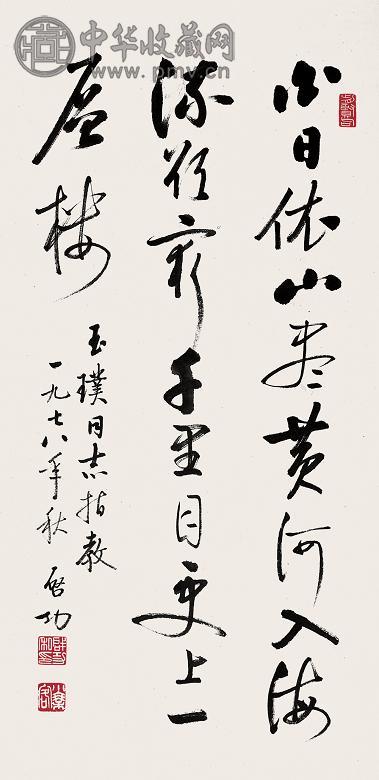 中华收藏网
www.pmv.cn
白日依山盡黄河入海
流欲窮千里目更上一
層樓
玉璞同志指教
一九七八年秋 啓功